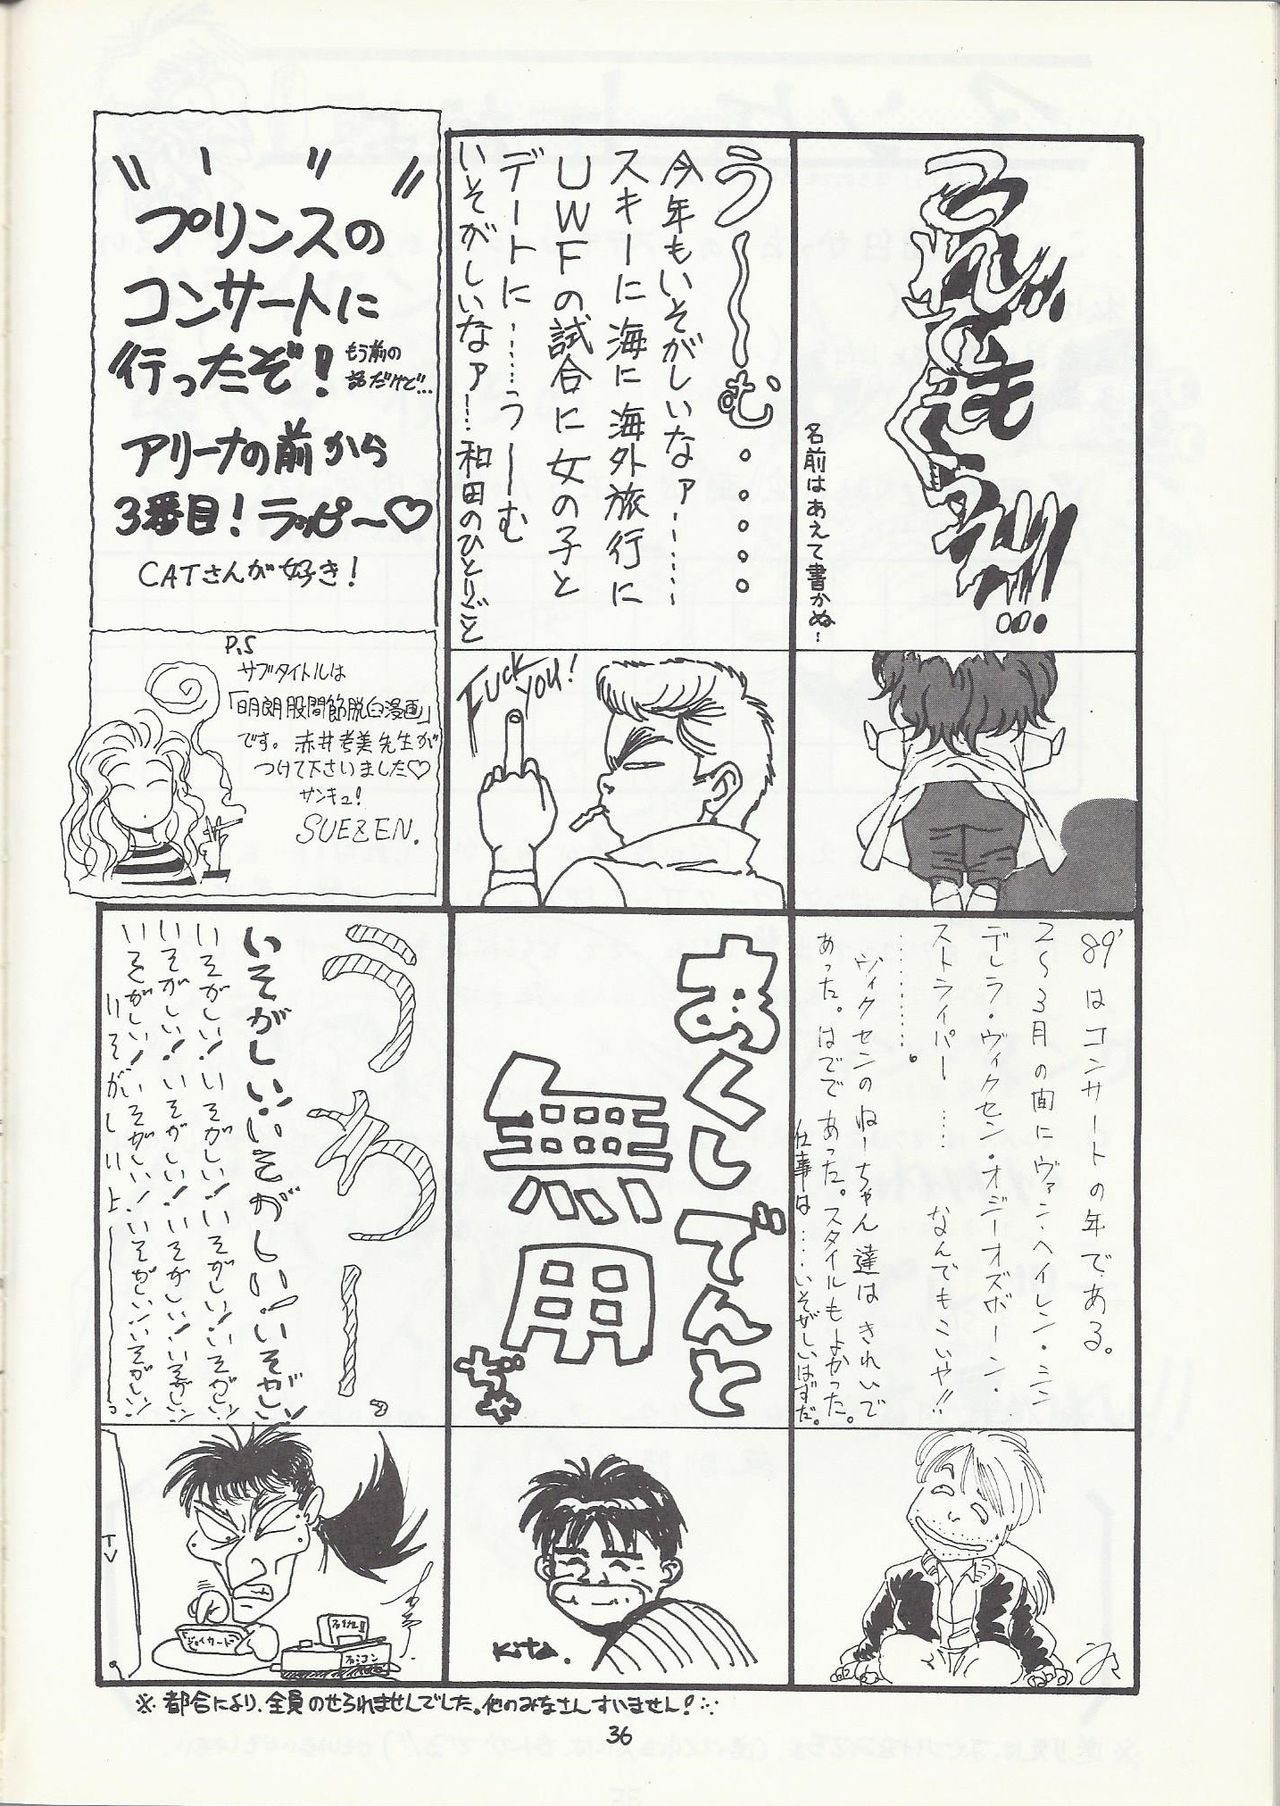 これでもくらえ!!!…
名前はあえて書かぬ!
う〜〜む。。。。。
今年もいそがしいなァー……
スキーに海に海外旅行に
UWFの試合に女の子と
デートに……うーむ
いそがしいなァー…和田のひとりごと
Fuck
YOU!
プリンスの
コンサートに
行ったぞ!
もう前の
話だけど…
アリーナの前から
3番目!ラッピ〜♡
CATさんが好き!
P.S
サブタイトルは
「明朗股間節脱臼漫画」
です。赤井孝美先生が
つけて下さいました♡
サンキュ!
SUEZEN.
89'はコンサートの年である。
2〜3月の間にヴァン・ヘイレン・シン
デレラ・ヴィクセン・オジーオズボーン・
ストライパー……なんでもこいや!!
………。
ヴィクセンのねーちゃん達はきれいで
あった。はでであった。スタイルもよかった。
仕事は……いそがしいはずだ。
あくしでんと
無用
ぢゃ
Kita.
うわー。
いそがしい!いそがしい!いそがしい!
いそがしい!いそがしい!いそがしい!いそがしい!
いそがしい!いそがしい!いそがしい!いそがしい!
いそがしい!いそがしい!いそがしい!いそがしい!
いそがしいよ——。
TV
ジョイカード
ファミコン
※都合により、全員のせられませんでした。他のみなさんすいません!
36